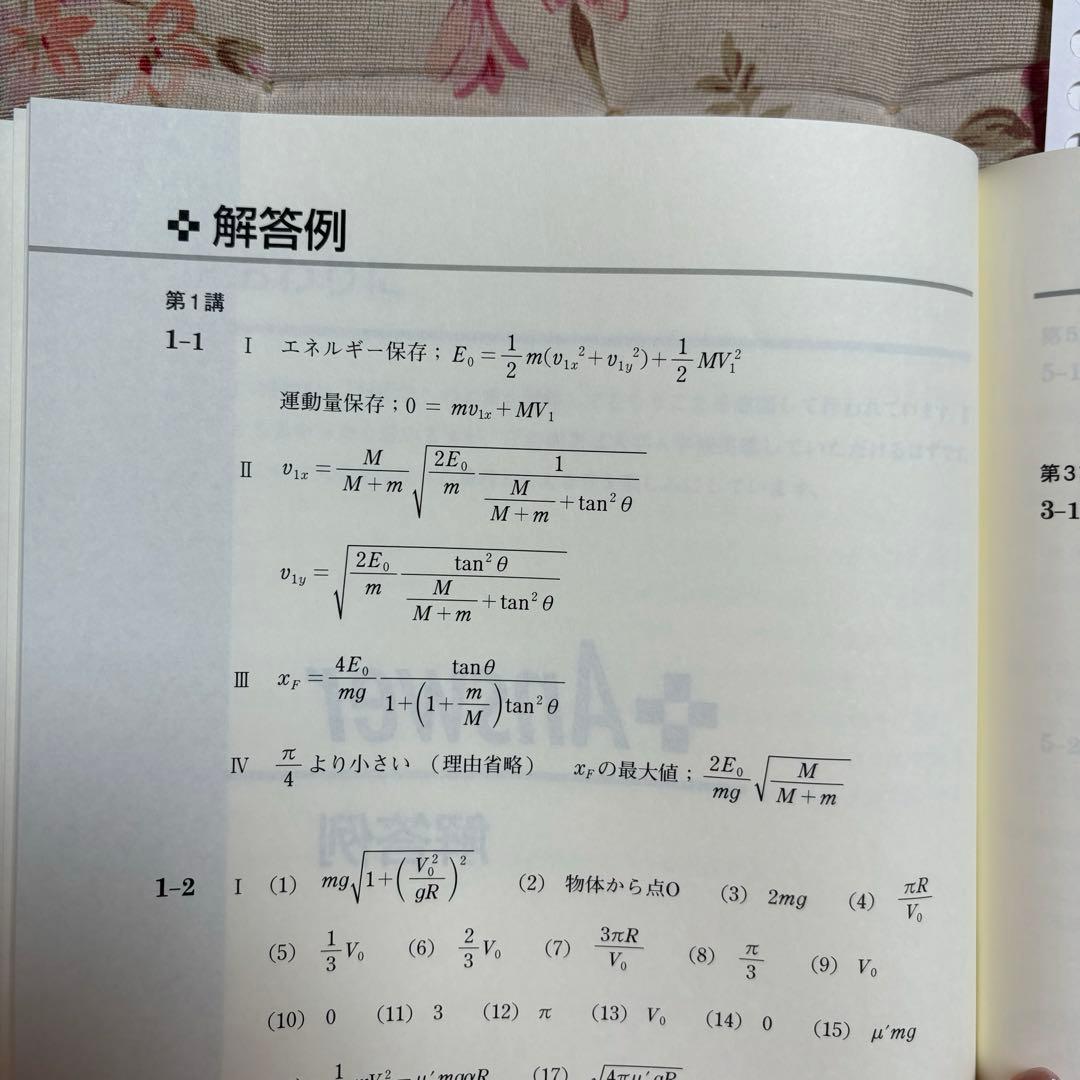 解答例
第1講
1-1 Ⅰ エネルギー保存；E₀ = 1/2 m(v₁ₓ² + v₁y²) + 1/2 MV₁²
運動量保存；0 = mv₁ₓ + MV₁
Ⅱ v₁ₓ = M/(M+m) √(2E₀/m · 1/(M/(M+m) + tan²θ))
v₁y = √(2E₀/m · tan²θ/(M/(M+m) + tan²θ))
Ⅲ x_F = 4E₀/mg · tanθ/(1+(1+m/M)tan²θ)
Ⅳ π/4 より小さい （理由省略） x_Fの最大値；2E₀/mg √(M/(M+m))
1-2 Ⅰ (1) mg√(1+(V₀²/gR)²) (2) 物体から点O (3) 2mg (4) πR/V₀
(5) 1/3 V₀ (6) 2/3 V₀ (7) 3πR/V₀ (8) π/3 (9) V₀
(10) 0 (11) 3 (12) π (13) V₀ (14) 0 (15) μ′mg
(17)
第3
3-1